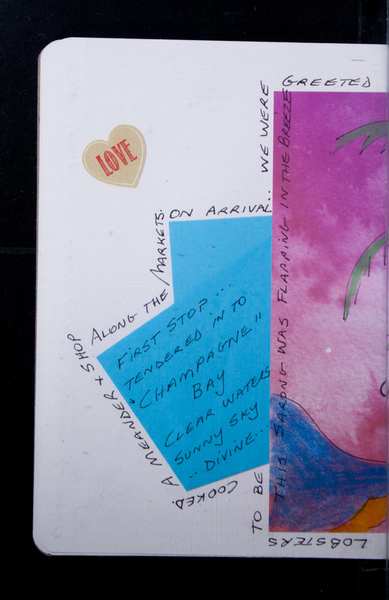 LOVE
ON ARRIVAL.. WE WERE GREETED
THIS SARONG WAS FLAPPING IN THE BREEZE
LOBSTERS
TO BE
COOKED.
A MEANDER + SHOP
ALONG THE MARKETS.
FIRST STOP...
TENDERED IN TO
"CHAMPAGNE"
BAY
CLEAR WATERS
SUNNY SKY
.. DIVINE...